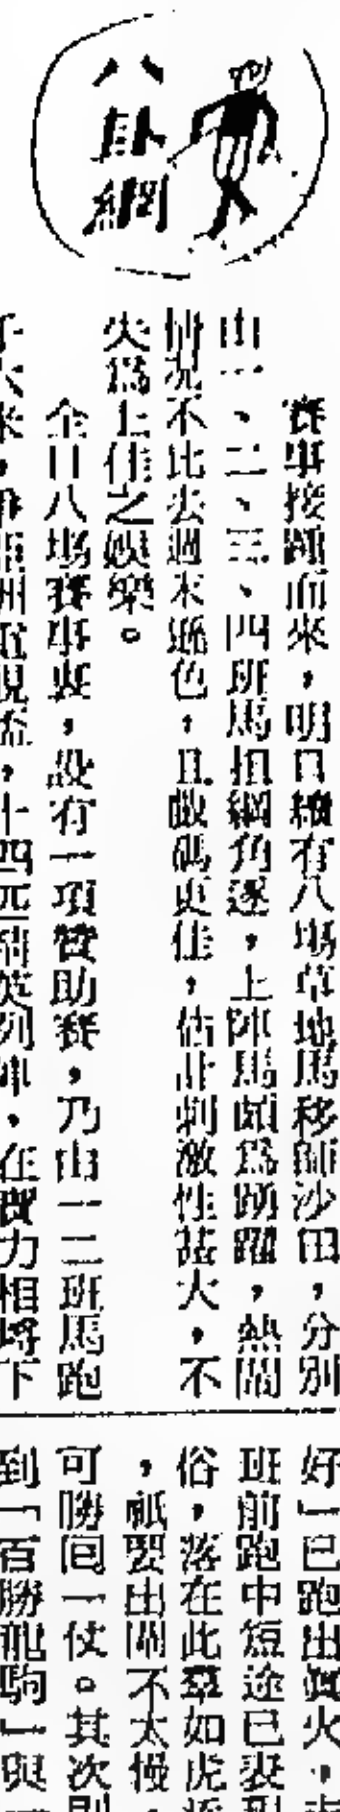 八卦網
賽事接踵而來，明日續有八場草地馬移師沙田，分別
由一、二、三、四班馬担綱角逐，上陣馬頗為踴躍，熱鬧
情況不比去週末遜色，且戲碼更佳，估計刺激性甚大，不
失為上佳之娛樂。
全日八場賽事裏，設有一項贊助賽，乃由一二班馬跑
千六米，爭亞洲電視盃，十四元精英列陣，在實力相埒下
好」已跑出真火，
班前跑中短途已表現
俗，落在此羣如虎
，祇要出閘不太慢，
可勝回一仗。其次則
到「百勝龍駒」與